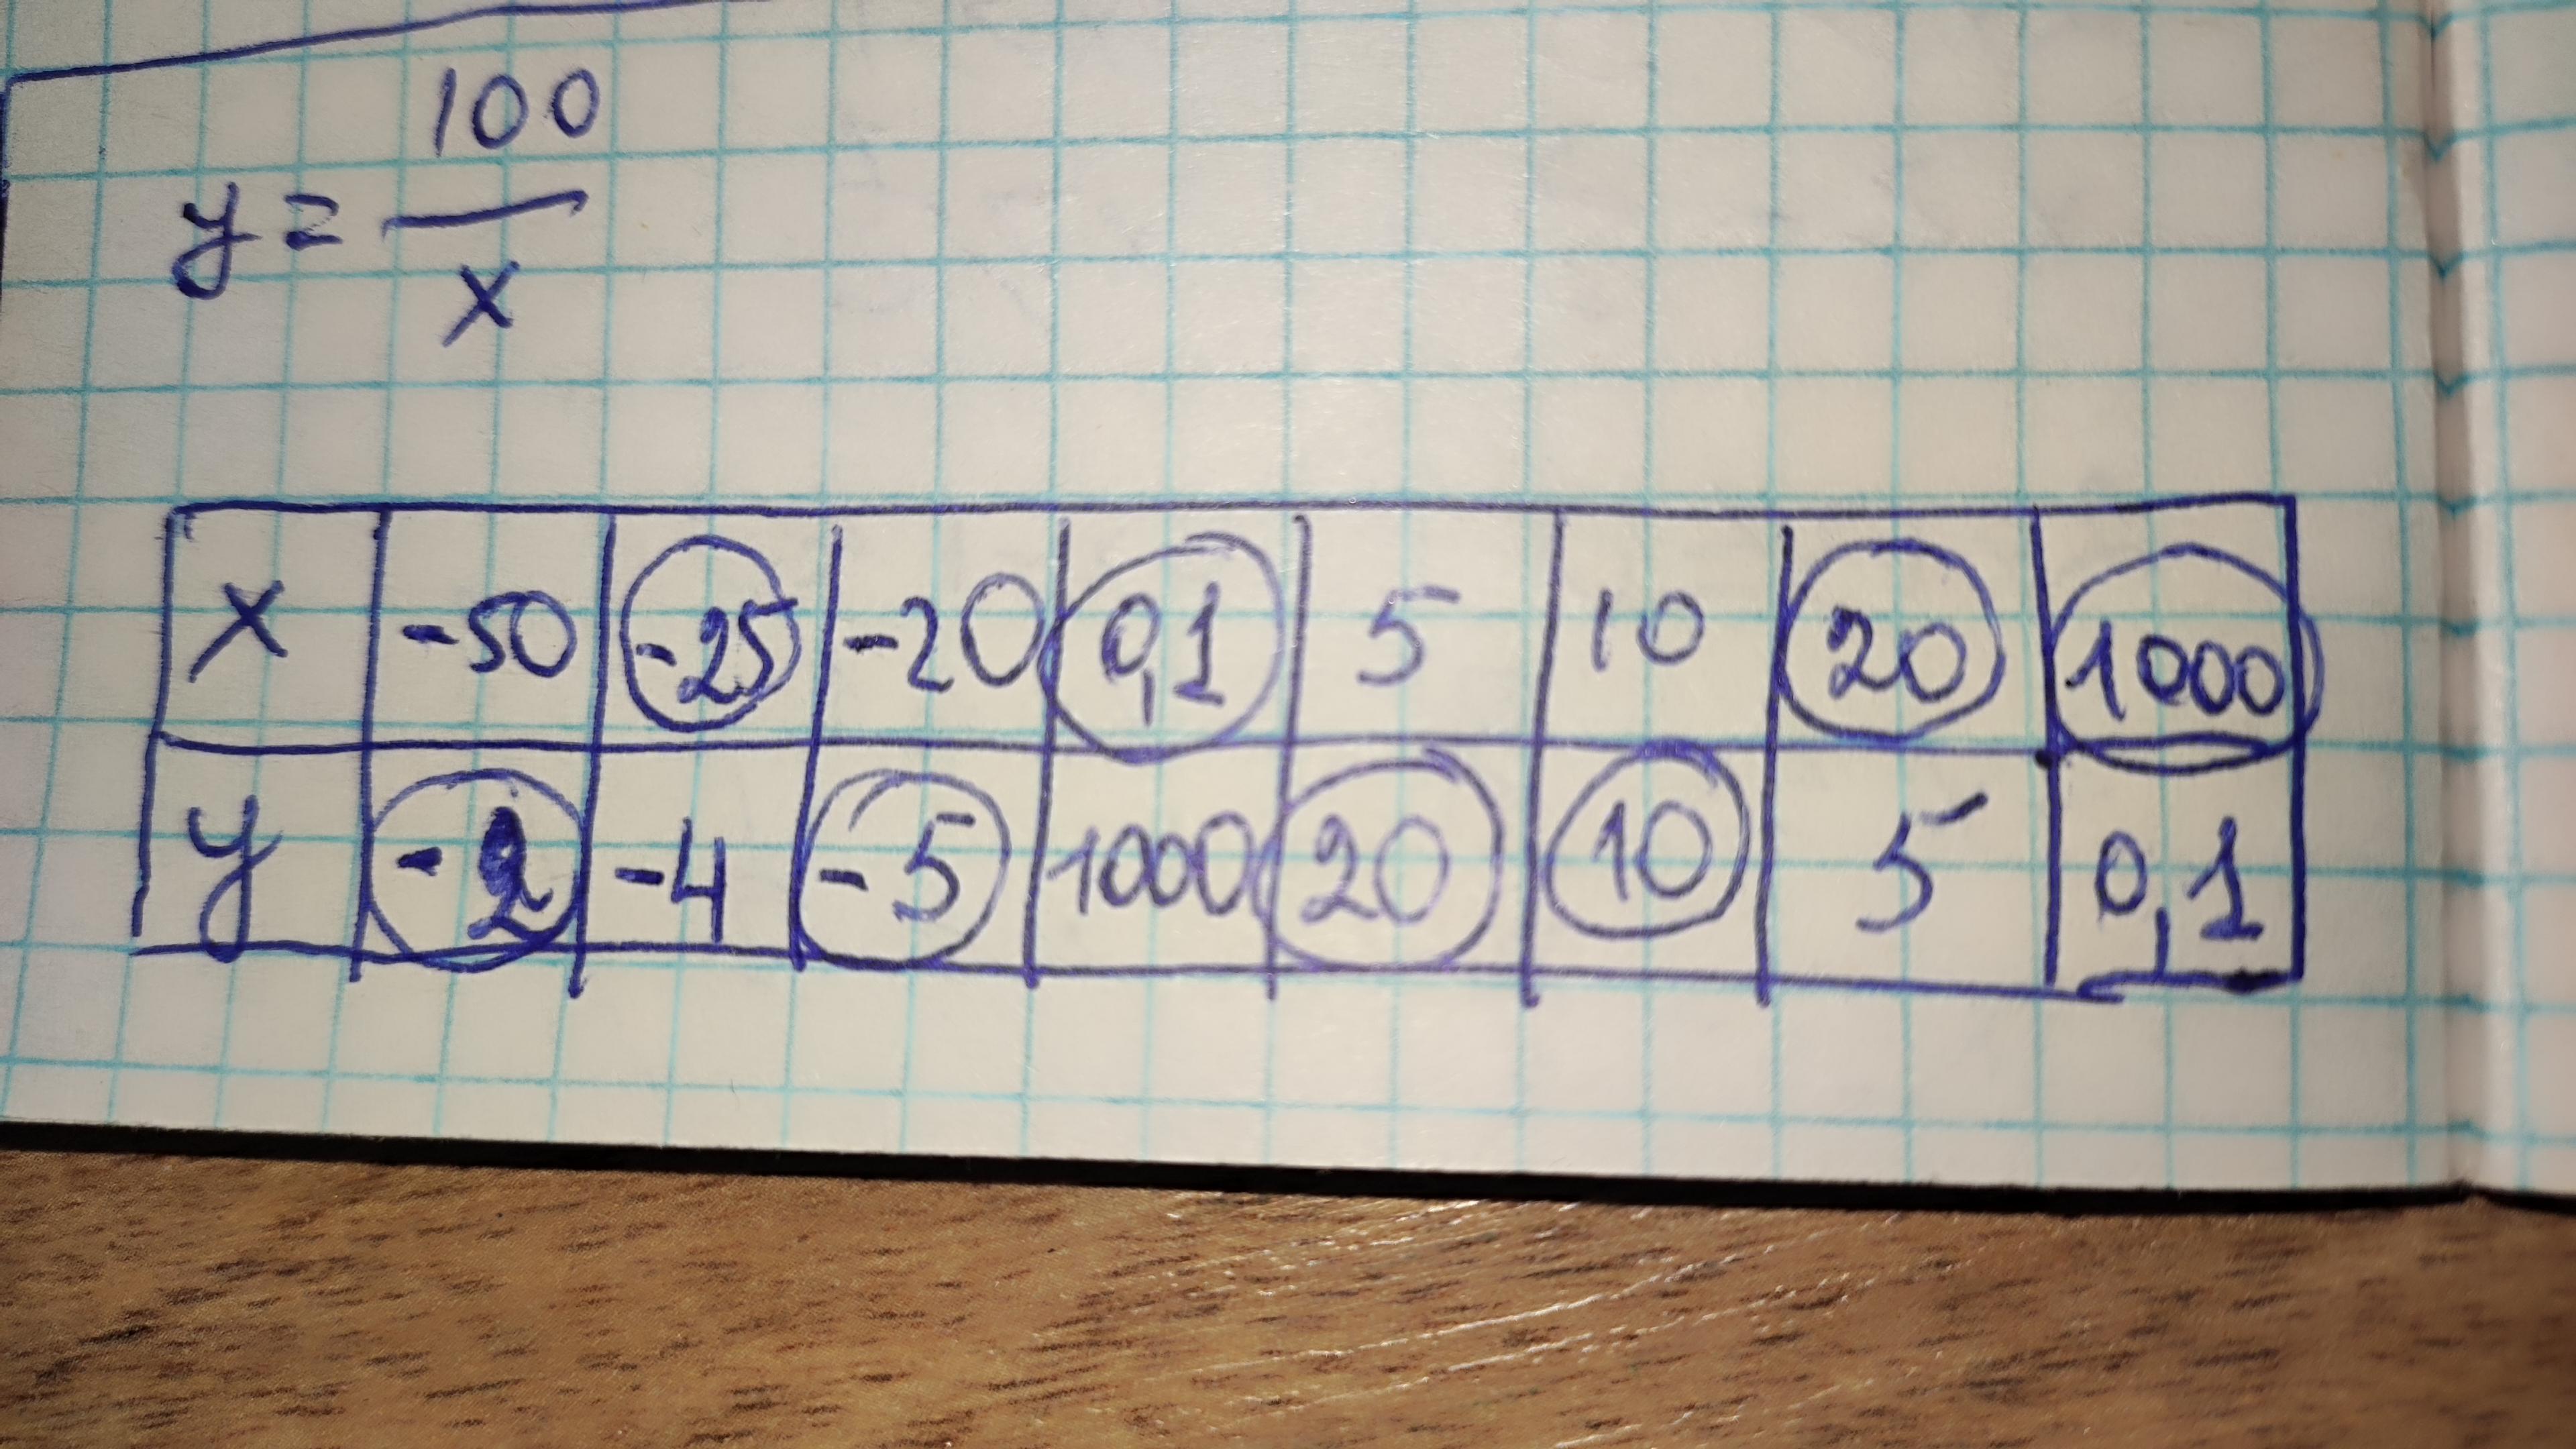 y = 100/x
x -50 -25 -20 0,1 5 10 20 1000
y -2 -4 -5 1000 20 10 5 0,1